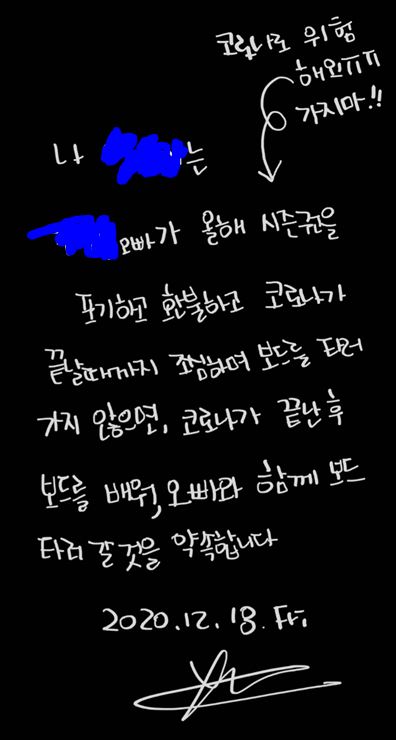 코로나로 위험
해외ㅠㅠ
가지마!!
나 는
오빠가 올해 시즌권을
포기하고 환불하고 코로나가
끝날때까지 조심하며 보드를 타러
가지 않으면, 코로나가 끝난 후
보드를 배워, 오빠와 함께 보드
타러 갈 것을 약속합니다
2020.12.18.Fri